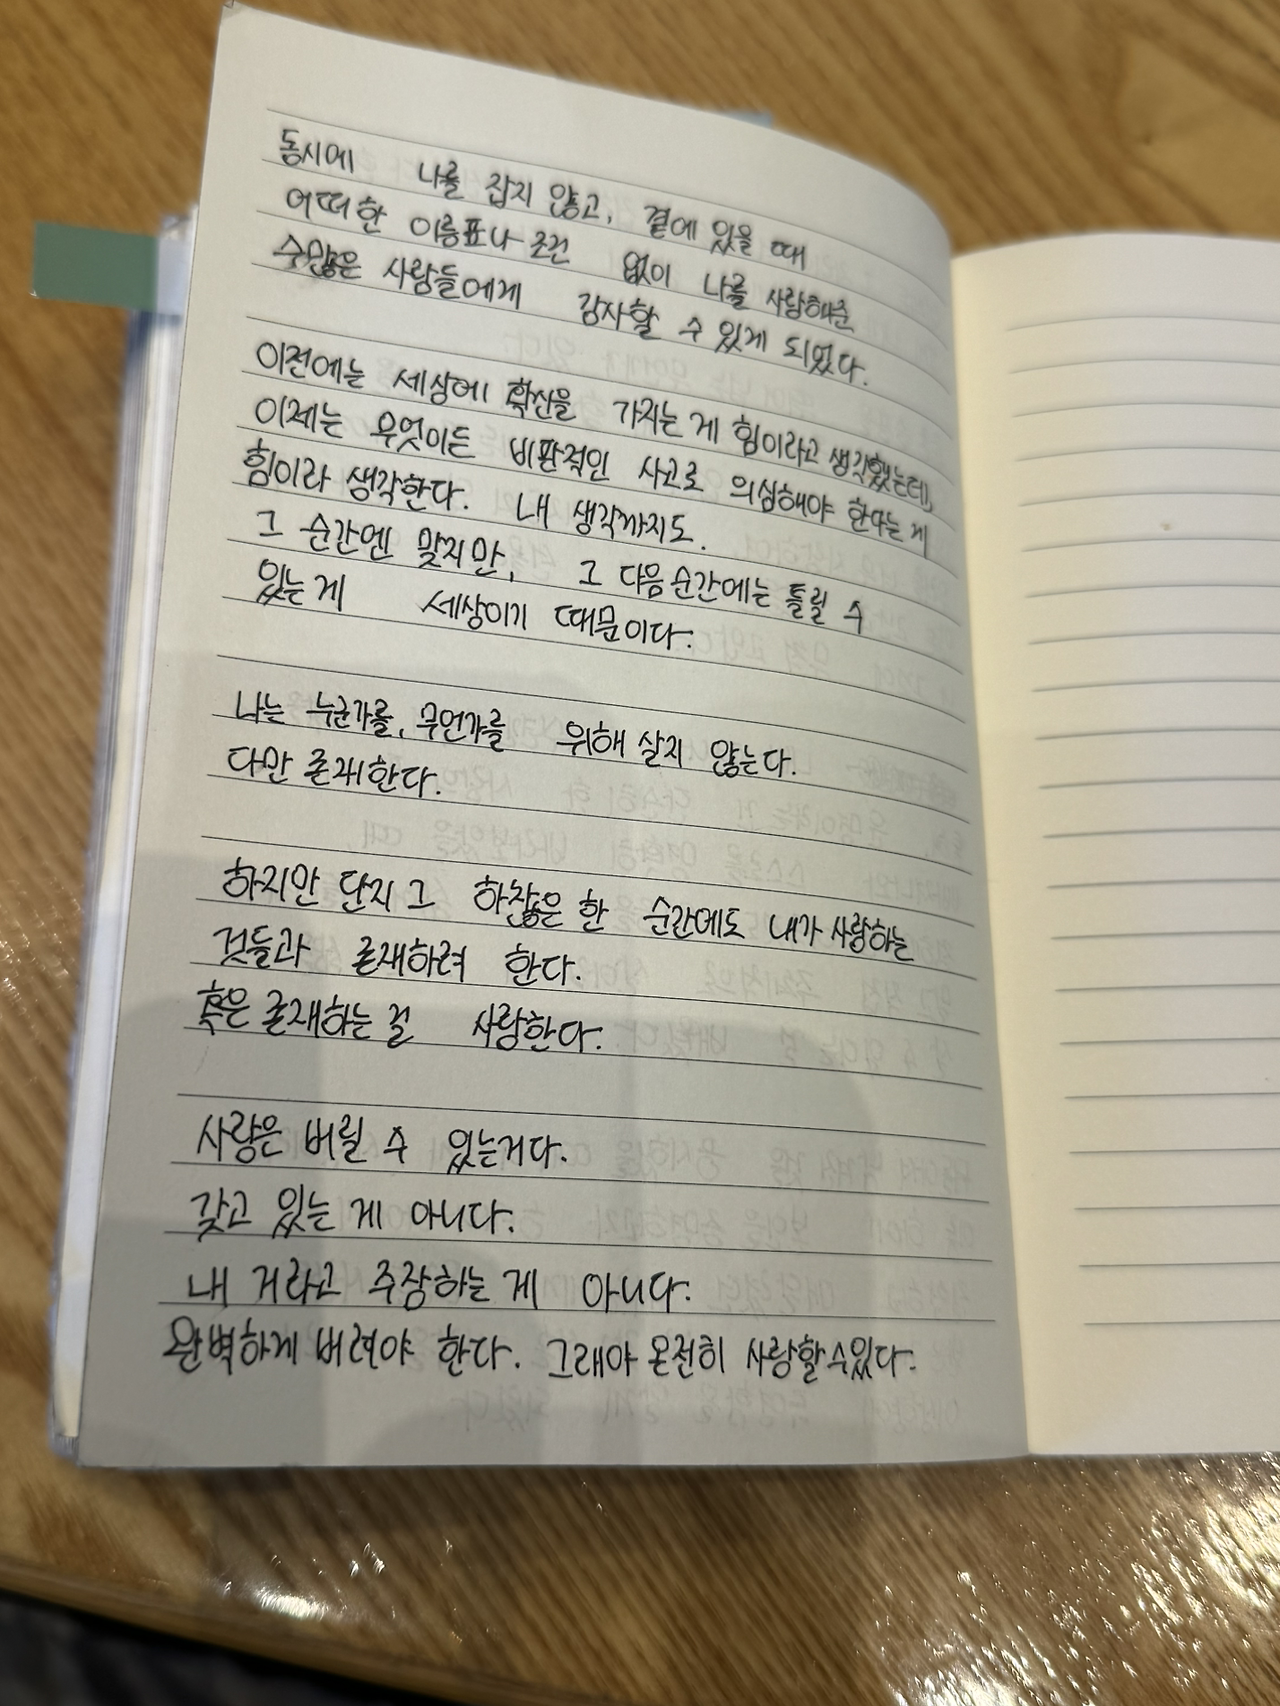 동시에 나를 잡지 않고, 곁에 있을 때
어떠한 이름표나 조건 없이 나를 사랑해준
수많은 사람들에게 감사할 수 있게 되었다.
이전에는 세상에 확신을 가지는 게 힘이라고 생각했는데,
이제는 무엇이든 비판적인 사고로 의심해야 한다는 게
힘이라 생각한다. 내 생각까지도.
그 순간엔 맞지만, 그 다음 순간에는 틀릴 수
있는 게 세상이기 때문이다.
나는 누군가를, 무언가를 위해 살지 않는다.
다만 존재한다.
하지만 단지 그 하찮은 한 순간에도 내가 사랑하는
것들과 존재하려 한다.
혹은 존재하는 걸 사랑한다.
사랑은 버릴 수 있는거다.
갖고 있는 게 아니다.
내 거라고 주장하는 게 아니다.
완벽하게 버려야 한다. 그래야 온전히 사랑할 수 있다.